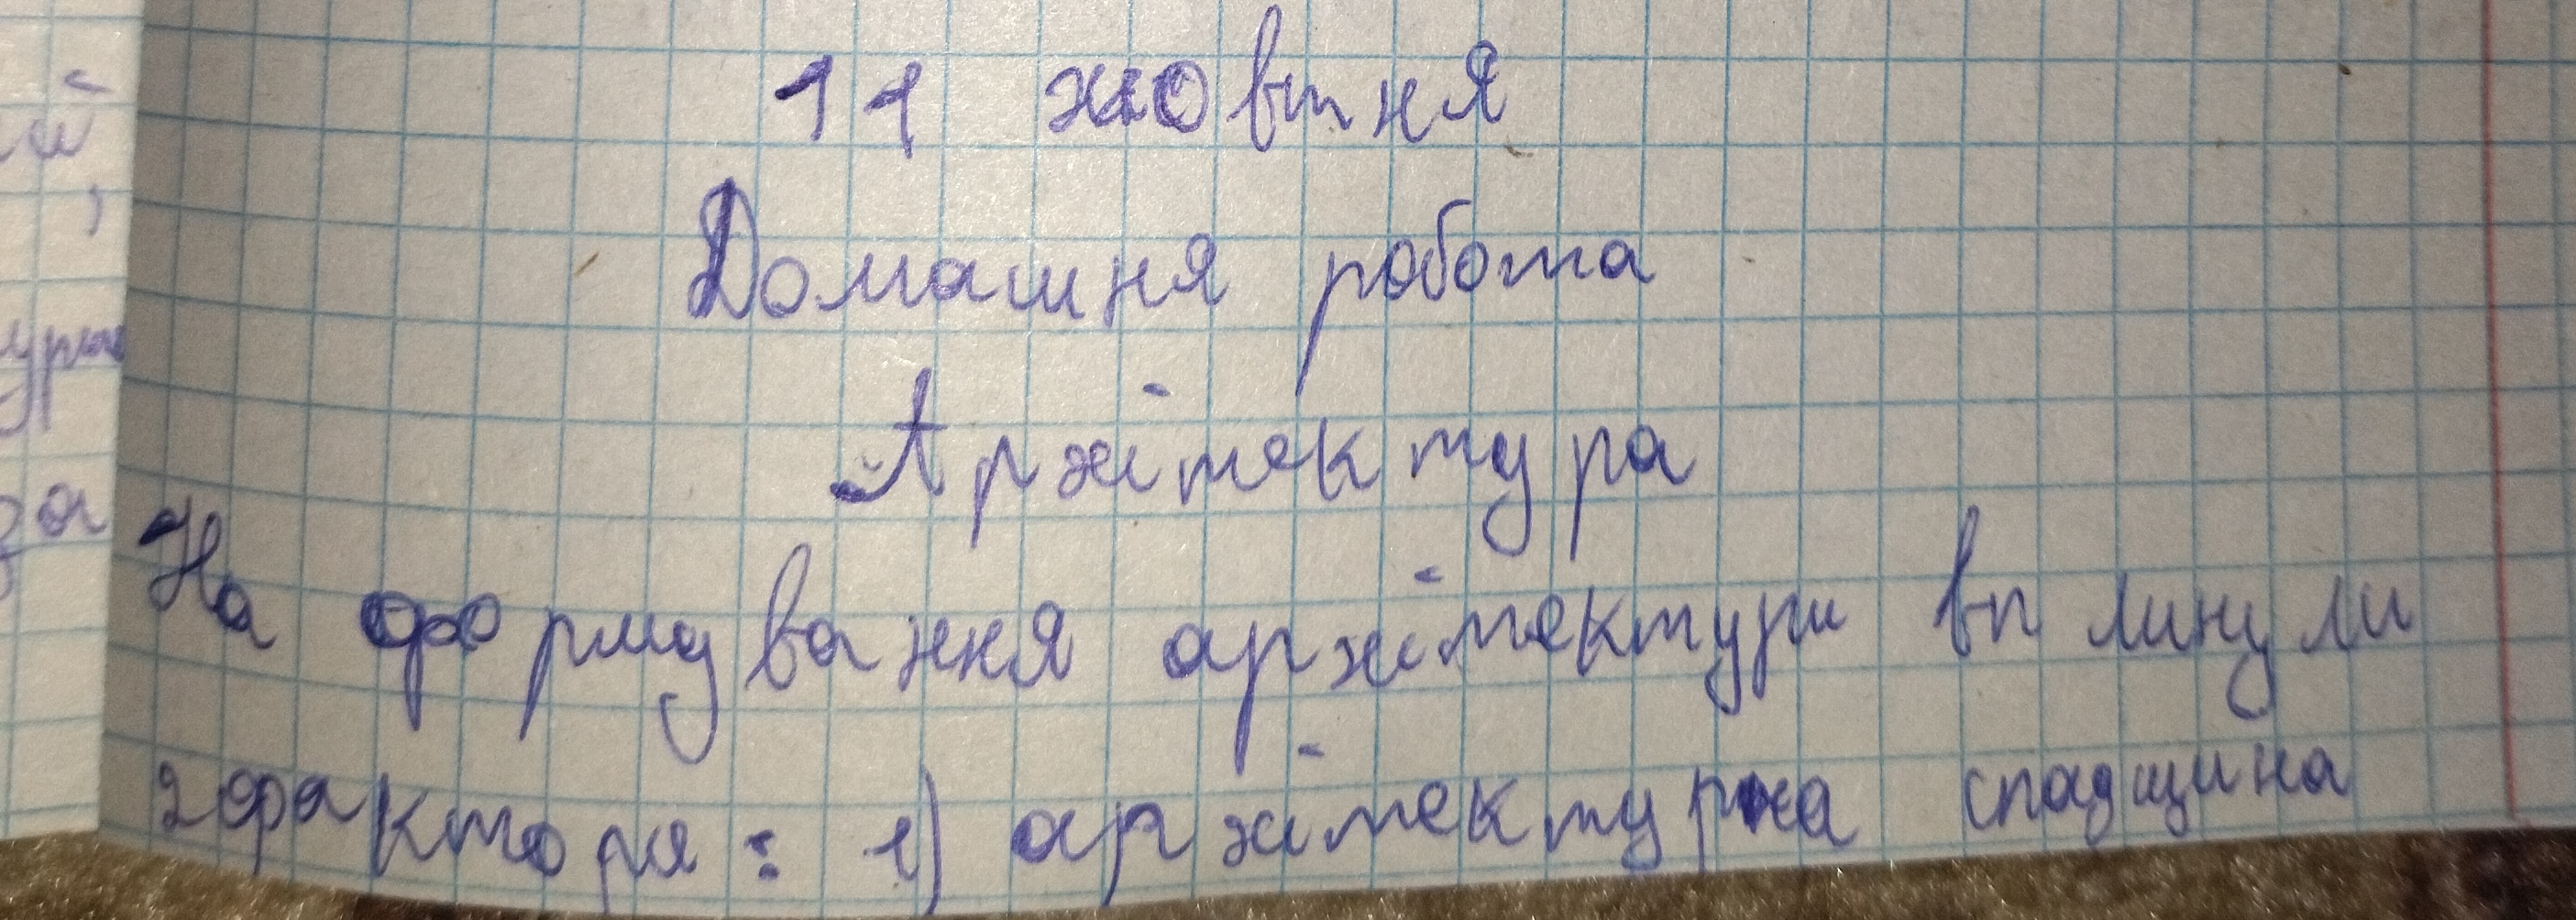 11 жовтня
Домашня робота
Аржітектура
На формування аржітектури вплинули
2 факторя: 1) аржітектурна спадщина